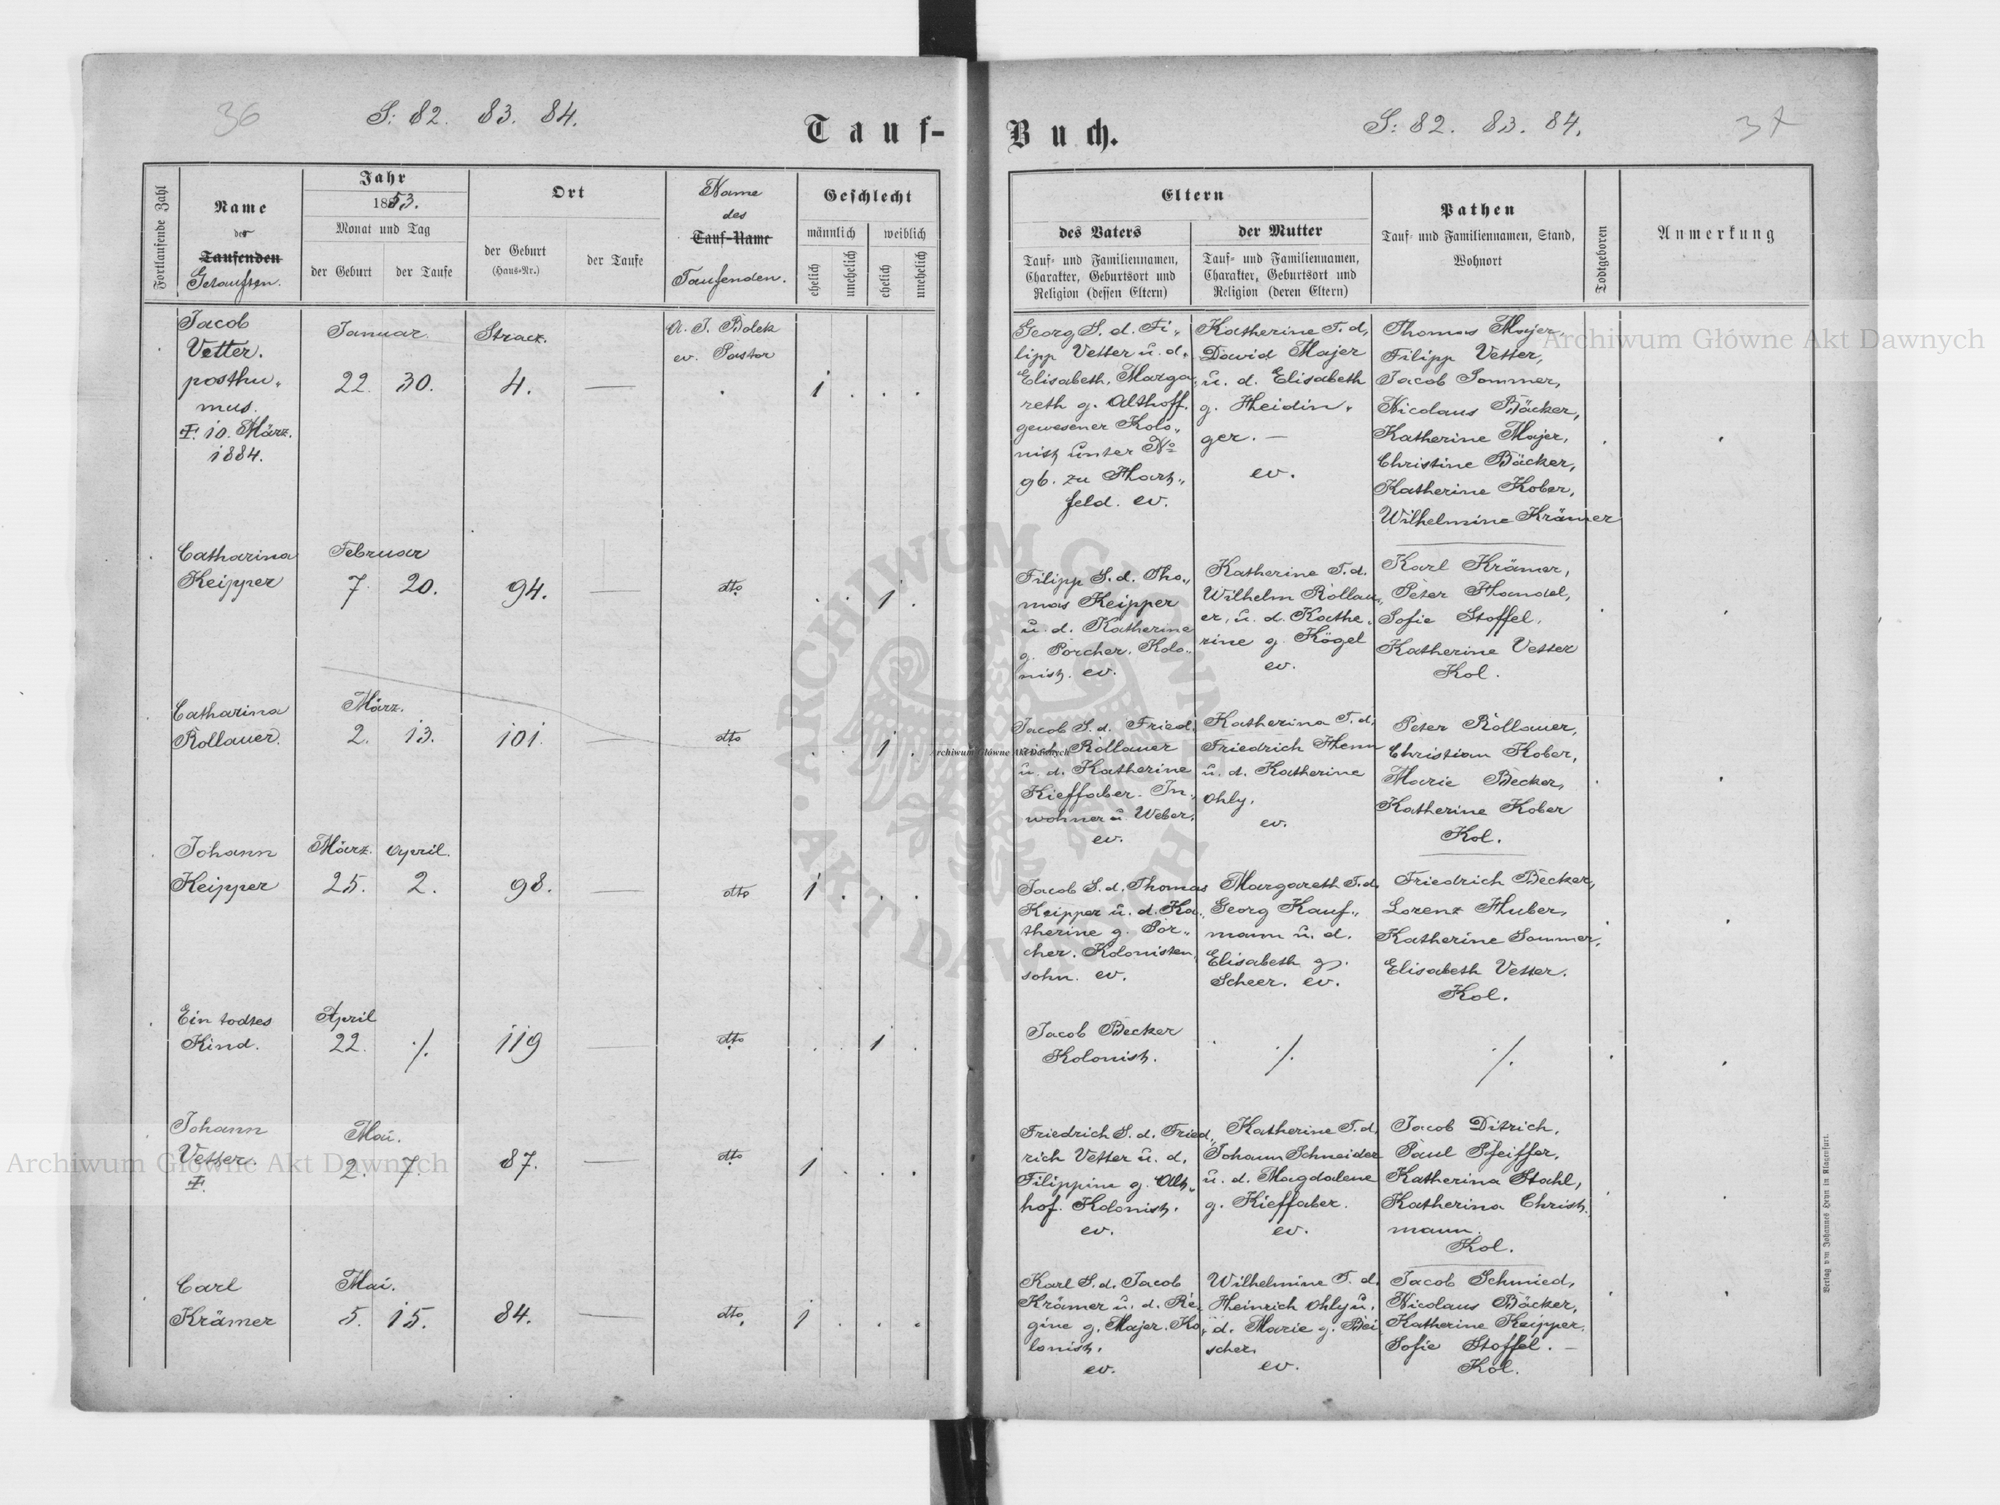 36
S: 82. 83. 84.
Tauf-
Fortlaufende Zahl
Name
der
Taufenden
Getauften.
Jahr
1853.
Monat und Tag
der Geburt
der Taufe
Ort
der Geburt
(Haus-Nr.)
der Taufe
Name
des
Tauf-Name
Taufenden.
Geschlecht
männlich
weiblich
ehelich
unehelich
ehelich
unehelich
Jacob
Vetter.
posthu„
mus.
10. März.
1884.
Januar.
22. 30.
Stracz.
4.
A. J. Bolek
ev. Pastor
1
Catharina
Keipper
Februar
7. 20.
94.
dto
1
Catharina
Rollauer.
März.
2. 13.
101.
dto
1
Johann
Keipper
März. April.
25. 2.
98.
dto
1
Ein todtes
Kind.
April
22. ./.
119
dto
1
Johann
Vetter.
Mai.
2. 7.
87.
dto
1
Carl
Krämer
Mai.
5. 15.
84.
dto
1
Buch.
S: 82. 83. 84.
37
Eltern
des Vaters
Tauf- und Familiennamen,
Charakter, Geburtsort und
Religion (dessen Eltern)
der Mutter
Tauf- und Familiennamen,
Charakter, Geburtsort und
Religion (deren Eltern)
Pathen
Tauf- und Familiennamen, Stand,
Wohnort
Todtgeboren
Anmerkung
Georg S. d. Fi„
lipp Vetter u. d.
Elisabeth, Marga
reth g. Althoff.
gewesener Kolo„
nist unter No
96. zu Hart„
feld. ev.
Katherine T. d.
David Majer
u. d. Elisabeth
g. Heidin„
ger. —
ev.
Thomas Majer,
Filipp Vetter,
Jacob Sommer,
Nicolaus Bäcker,
Katherine Majer,
Christine Bäcker,
Katherine Kober,
Wilhelmine Krämer
Filipp S. d. Tho„
mas Keipper
u. d. Katherine
g. Porcher. Kolo„
nist. ev.
Katherine T. d.
Wilhelm Rollau„
er, u. d. Kathe„
rine g. Kögel
ev.
Karl Krämer,
Peter Handel,
Sofie Stoffel,
Katherine Vetter
Kol.
Jacob S. d. Fried„
rich Rollauer
u. d. Katherine
Kieffaber. In„
wohner u. Weber.
ev.
Katherina T. d.
Friedrich Henn
u. d. Katherine
Ohly.
ev.
Peter Rollauer,
Christian Kober,
Marie Becker,
Katherine Kober
Kol.
Jacob S. d. Thomas
Keipper u. d. Ka„
therine g. Por„
cher. Kolonisten„
sohn. ev.
Margareth T. d.
Georg Kauf„
mann u. d.
Elisabeth g.
Scheer. ev.
Friedrich Becker,
Lorenz Huber,
Katherine Sommer,
Elisabeth Vetter.
Kol.
Jacob Becker
Kolonist.
./.
./.
Friedrich S. d. Fried„
rich Vetter u. d.
Filippine g. Alt„
hof. Kolonist.
ev.
Katherine T. d.
Johann Schneider
u. d. Magdalene
g. Kieffaber.
ev.
Jacob Ditrich,
Paul Pfeiffer,
Katherina Stahl,
Katherina Christ„
mann.
Kol.
Karl S. d. Jacob
Krämer u. d. Re„
gine g. Majer. Ko„
lonist.
ev.
Wilhelmine T. d.
Heinrich Ohly u.
d. Marie g. Bei
scher.
ev.
Jacob Schmied,
Nicolaus Bäcker,
Katherine Keipper,
Sofie Stoffel. —
Kol.
Verlag v'm Johannes Heyn in Klagenfurt.
Archiwum Główne Akt Dawnych
Archiwum Główne Akt Dawnych
Archiwum Główne Akt Dawnych
ARCHIWUM GŁÓWNE
AKT DAWNYCH